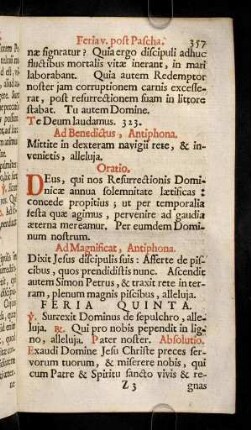 Feria v. post Pascha. 357
næ signratur? Quia ergo discipuli adhuc
fluctibus mortalis vitæ inerant, in mari
laborabant. Quia autem Redemptor
noster jam corruptionem carnis excesse-
rat, post resurrectionem suam in littore
stabat. Tu autem Domine.
Te Deum laudamus. 323.
Ad Benedictus, Antiphona.
Mittite in dexteram navigii rete, & in-
venietis, alleluja.
Oratio.
DEus, qui nos Resurrectionis Domi-
nicæ annua solemnitate lætificas:
concede propitius; ut per temporalia
festa quæ agimus, pervenire ad gaudia
æterna mereamur. Per eumdem Domi-
num nostrum.
Ad Magnificat, Antiphona.
Dixit Jesus discipulis suis: Afferte de pis-
cibus, quos prendidistis nunc. Ascendit
autem Simon Petrus, & traxit rete in ter-
ram, plenum magnis piscibus, alleluja.
FERIA QUINTA.
℣. Surrexit Dominus de sepulchro, alle-
luja. ℟. Qui pro nobis pependit in lig-
no, alleluja. Pater noster. Absolutio.
Exaudi Domine Jesu Christe preces ser-
vorum tuorum, & miserere nobis, qui
cum Patre & Spiritu sancto vivis & re-
Z 3 gnas